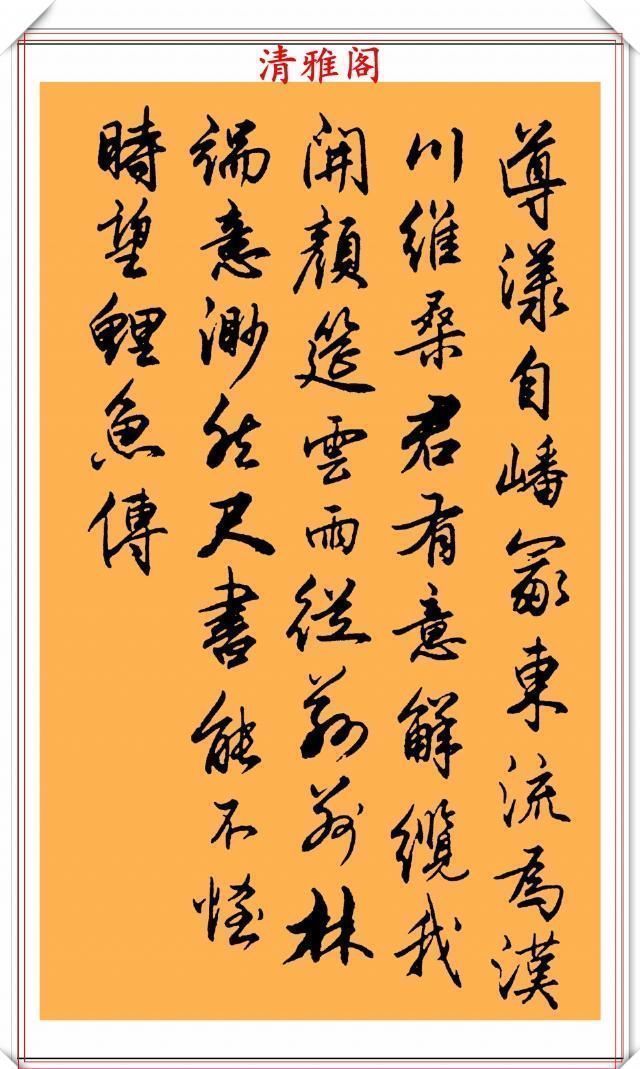 清雅阁
導漾自嶓冢東流為漢
川維桑君有意解纜我
開顏筵雲雨從茲別林
端意渺然尺書能不恡
時望鯉魚傳